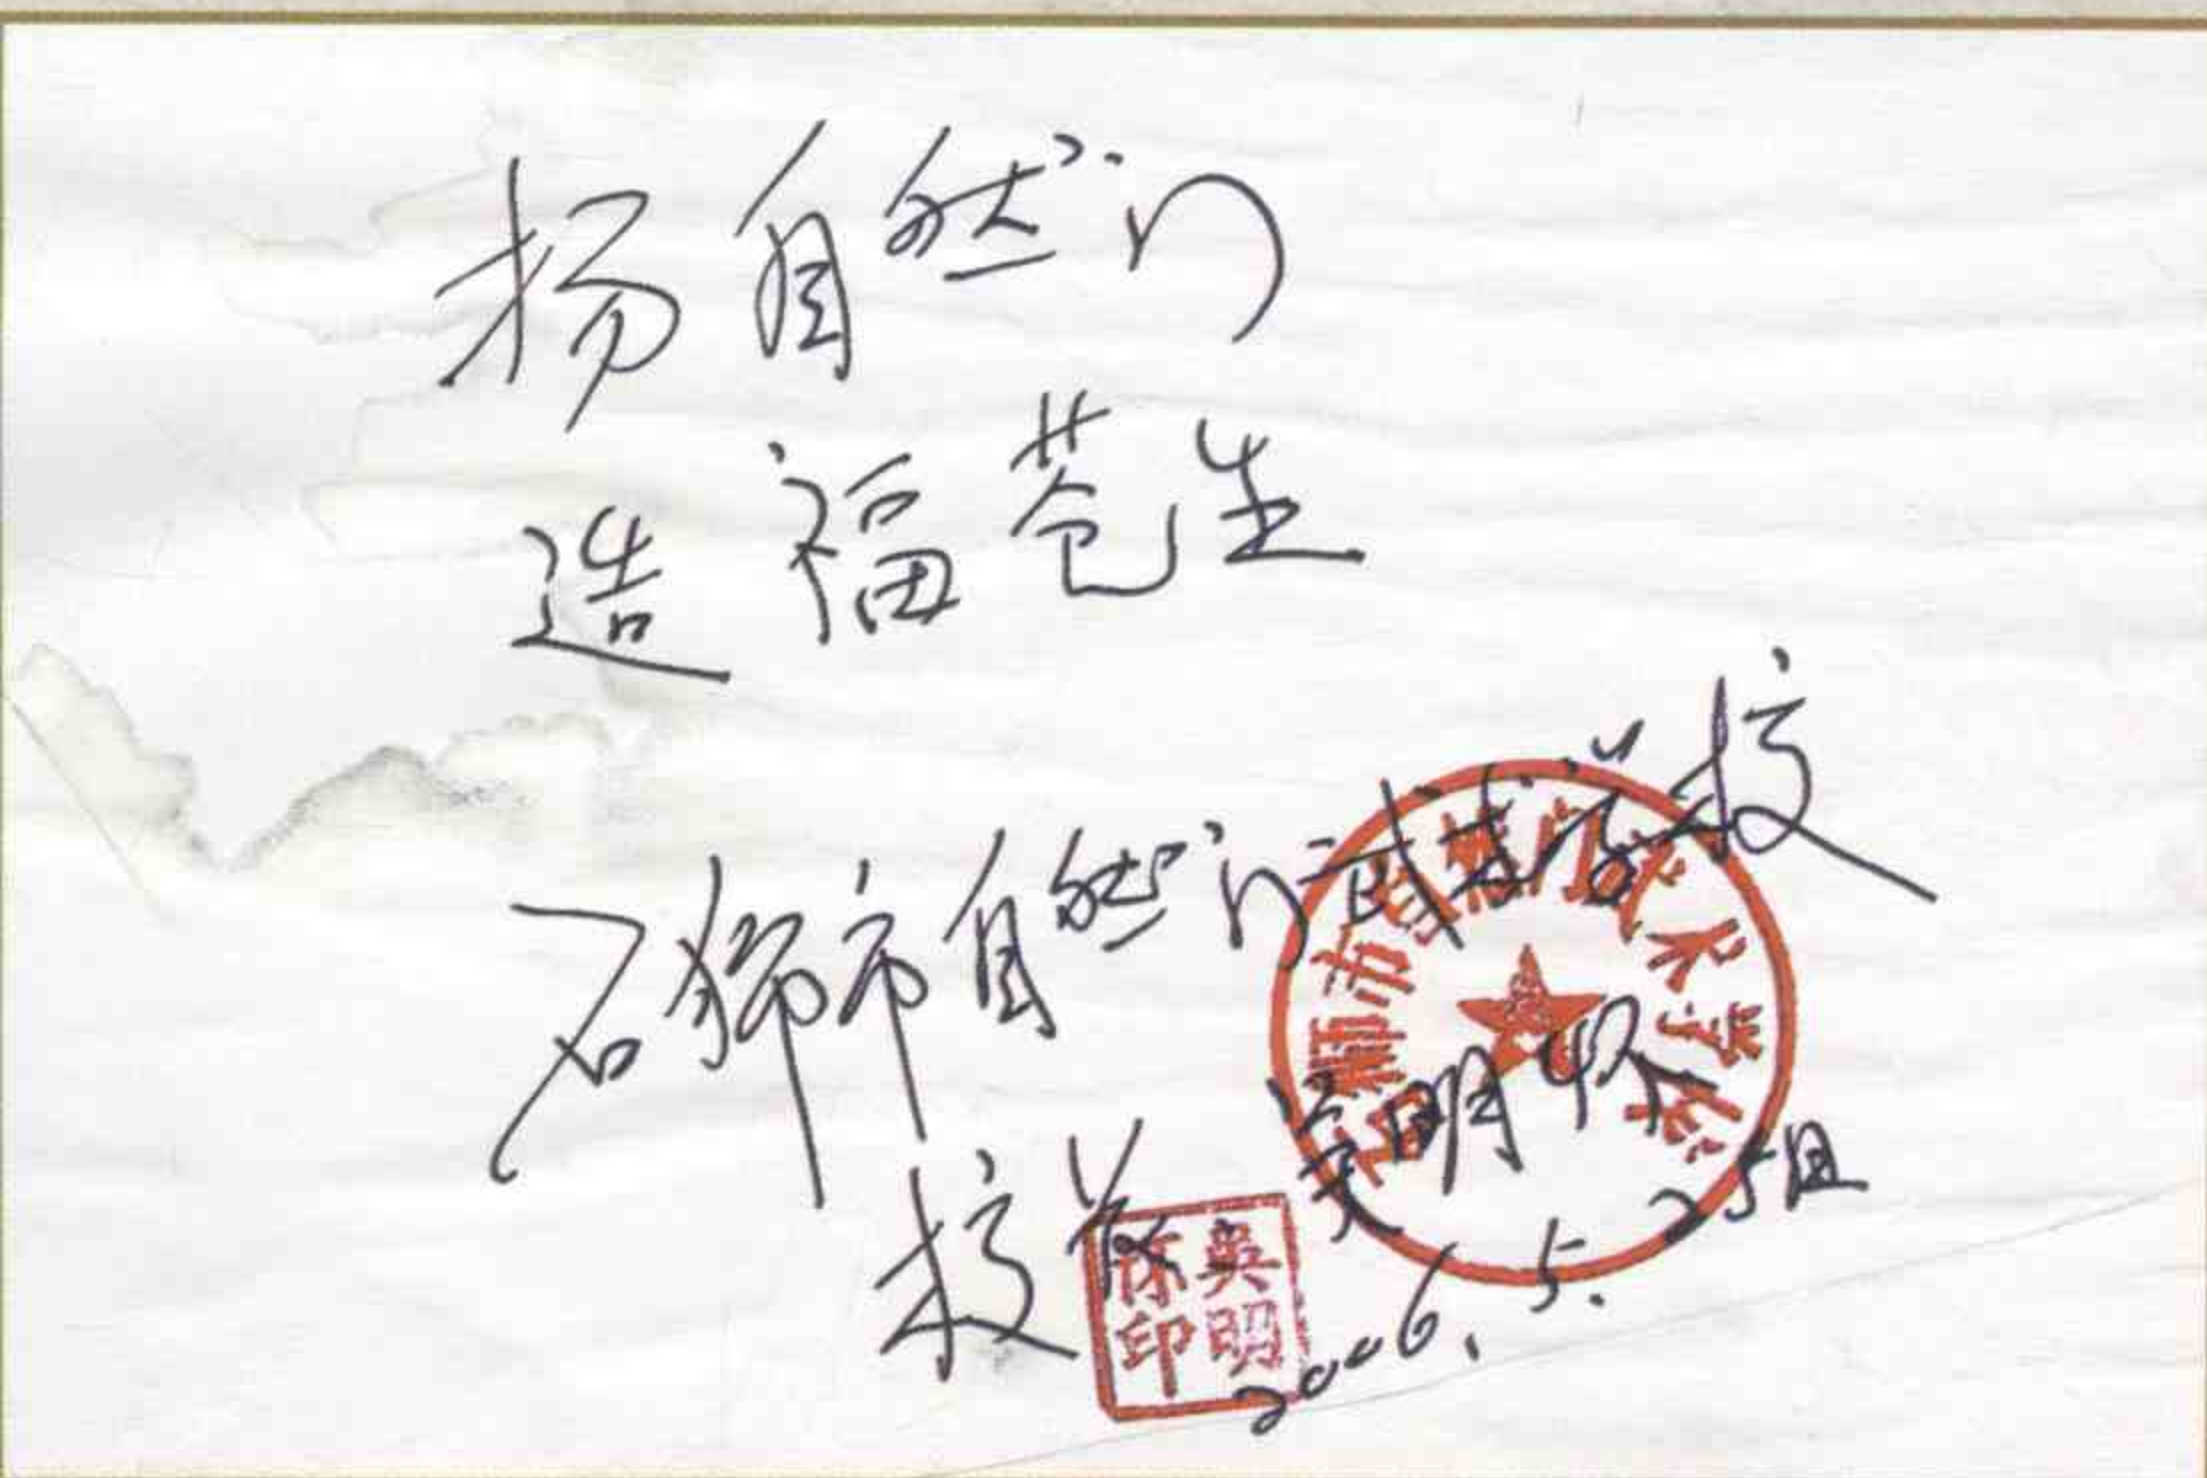 扬自然门
造福苍生
石狮市自然门武术学校
校长 吴明怀
2006.5.25日
石狮市自然门武术学校
吴明怀印